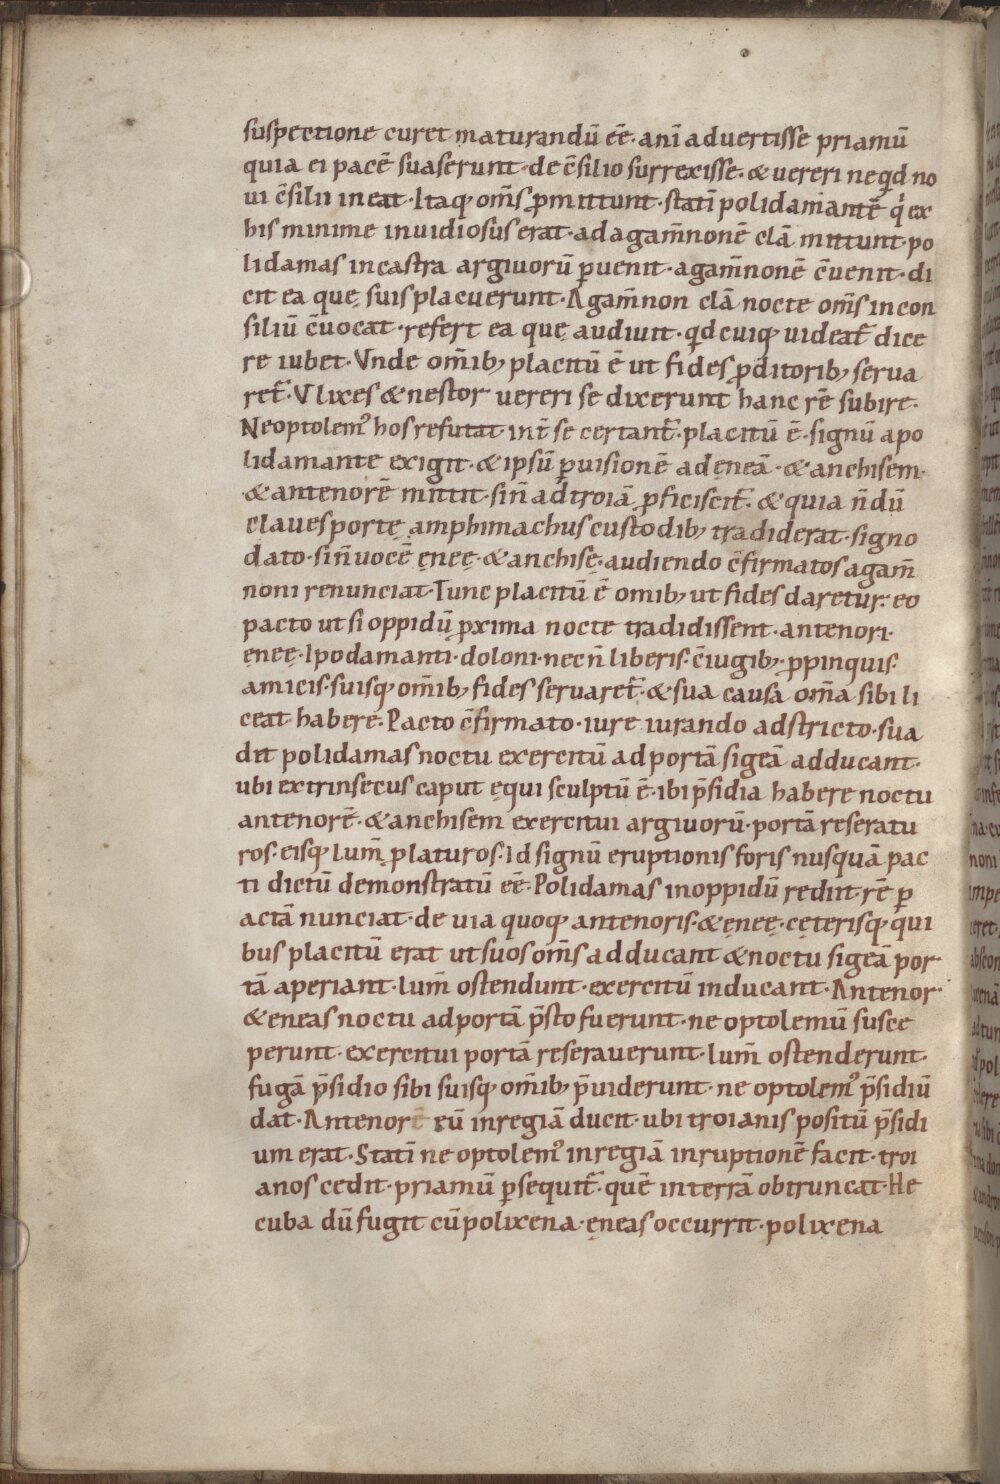 suspectione curet maturandū ēē· anī aduertisse priamū
quia ei pacē suaserunt· de c̄silio surrexisse· & uereri ne qd no
ui c̄silii ineat· Itaq; om̄s ꝓmittunt· statī polidamantē q̇ ex
his minime inuidiosus erat· ad agam̄nonē clā mittunt· po
lidamas in castra argiuorū ꝑuenit· agam̄nonē c̄uenit· di
cit ea quę suis placuerunt· Agam̄non clā nocte om̄s in con
siliū c̄uocat· refert ea quę audiuit· qd cuiq; uideat̄ dice
re iubet· Vnde om̄ib; placitū ē ut fides ꝓditorib; serua
ret̄· Vlixes & nestor uereri se dixerunt hanc rē subire·
Neoptolem᾽ hos refutat int̄ se certant̄· placitū ē· signū apo
lidamante exigit· & ipsū ꝑ uisionē ad ęneā· & anchisem·
& antenorē mittit· sin̄ ad troiā ꝓficiscit̄· & quia n̄dū
claues portę amphimachus custodib; tradiderat· signo
dato· sin̄ uocē ęnęę· & anchisę· audiendo c̄firmatos agam̄
noni renunciat· Tunc placitū ē omib; ut fides daretur· eo
pacto ut si oppidū ꝓxima nocte tradidissent· antenori·
ęnęę· Ipodamanti· doloni· necn̄ liberis· c̄iugib;· ꝓpinquis·
amicis· suisq; om̄ib; fides seruaret̄· & sua causa om̄a sibi li
ceat habere· Pacto c̄firmato· iure iurando adstricto· sua
dit polidamas noctu exercitū ad portā sigeā adducant·
ubi extrinsecus caput ęqui sculptū ē· ibi p̄sidia habere noctu
antenorē· & anchisem exercitui argiuorū· portā reseratu
ros· eisq; lum̄ ꝓlaturos· Id signū eruptionis foris nusquā pac
ti dictū demonstratū ēē· Polidamas in oppidū rediit· rē ꝑ
actā nunciat· de uia quoq; antenoris· & ęnęę· cęterisq; qui
bus placitū erat ut suos om̄s adducant & noctu sigeā por
tā aperiant· lum̄ ostendunt· exercitū inducant· Antenor
& eneas noctu ad portā p̄sto fuerunt· ne optolemū susce
perunt· exercitui portā reserauerunt· lum̄ ostenderunt·
fugā p̄sidio sibi suisq; om̄ib; p̄uiderunt· ne optolem᾽ p̄sidiū
dat· Antenorē eū in regiā ducit· ubi troianis positū p̄sidi
um erat· Statī ne optolem᾽ in regiā inruptionē facit· troi
anos cedit· priamū ꝑsequit̄· quē in terrā obtruncat· He
cuba dū fugit cū polixena· ęneas occurrit· polixena